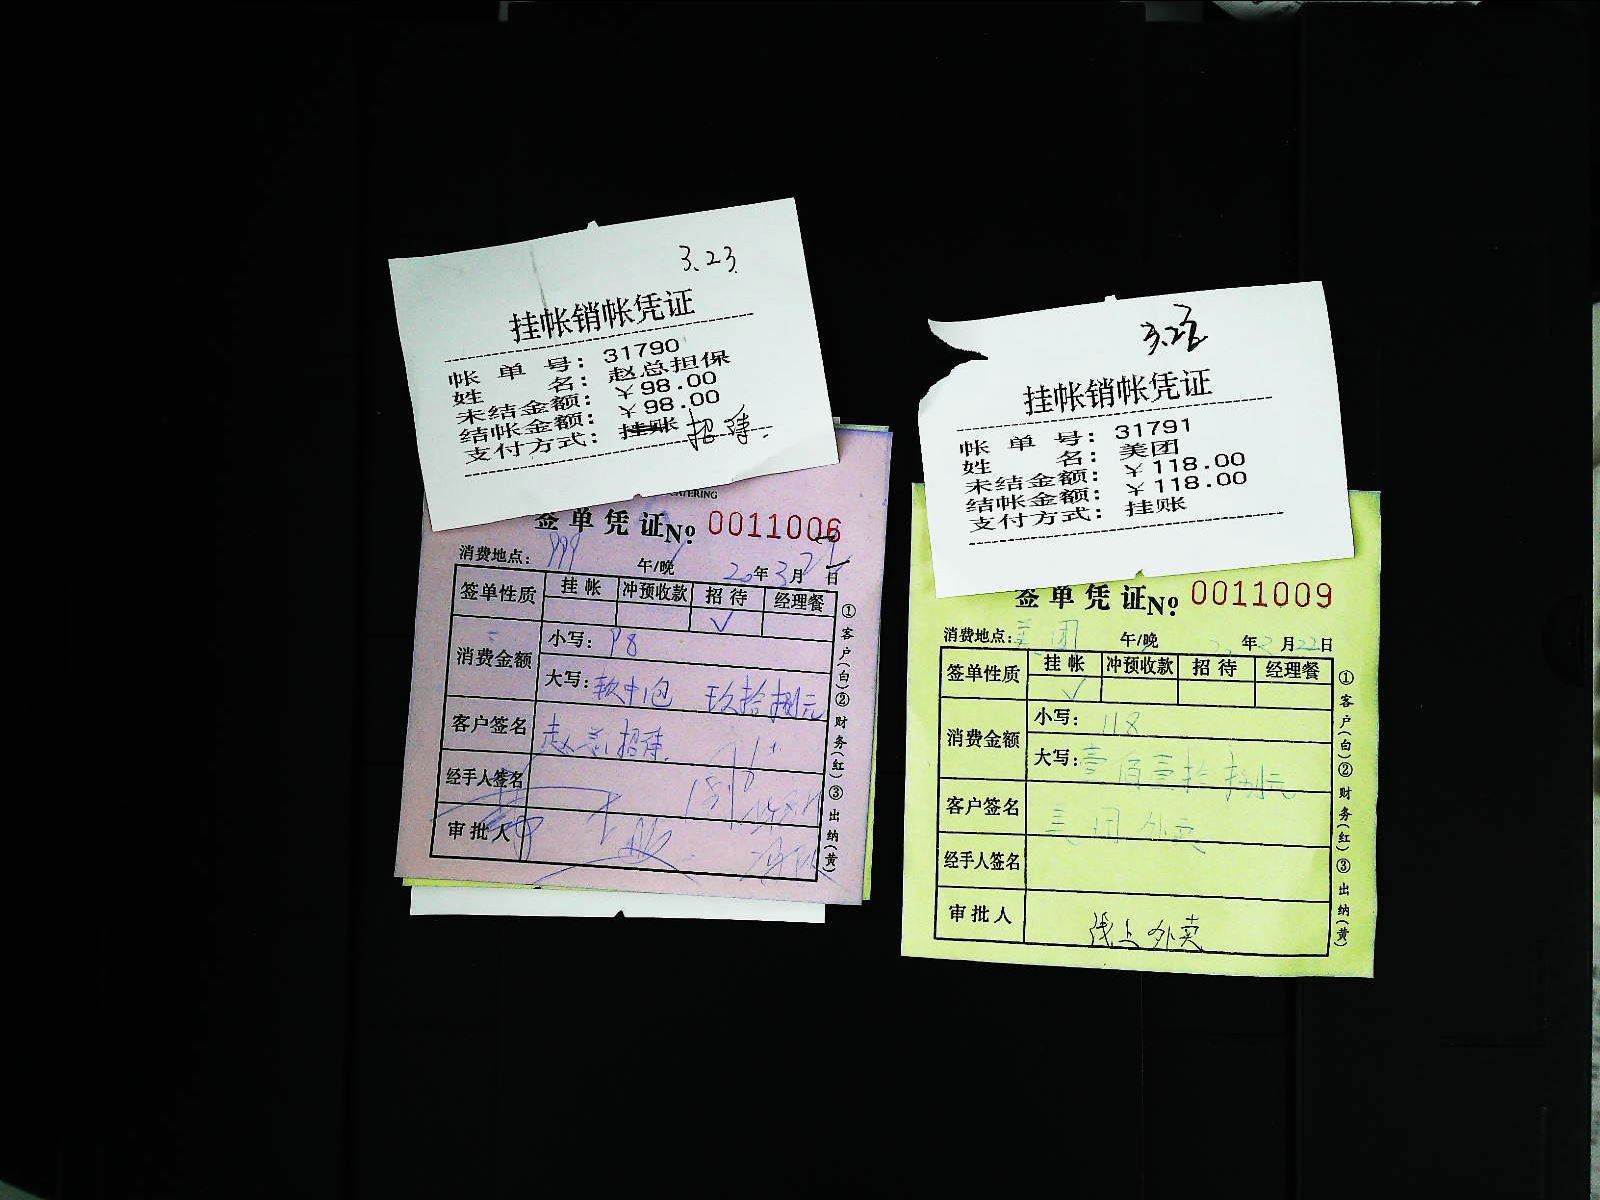 3.23
挂帐销帐凭证
帐单号：31790
姓名：赵总担保
未结金额：￥98.00
结帐金额：￥98.00
支付方式：挂账 招待.
签单凭证 № 0011006
消费地点： 999 午/晚 20年3月 日
签单性质 挂帐 冲预收款 招待 经理餐
✓
消费金额 小写： 98
大写： 软中1包 玖拾捌元
客户签名 赵总招待
经手人签名
审批人
①客户(白)②财务(红)③出纳(黄)
3.23
挂帐销帐凭证
帐单号：31791
姓名：美团
未结金额：￥118.00
结帐金额：￥118.00
支付方式：挂账
签单凭证 № 0011009
消费地点： 美团 午/晚 年3月22日
签单性质 挂帐 冲预收款 招待 经理餐
✓
消费金额 小写： 118
大写： 壹佰壹拾捌元
客户签名 美团外卖
经手人签名
审批人 线上外卖
①客户(白)②财务(红)③出纳(黄)